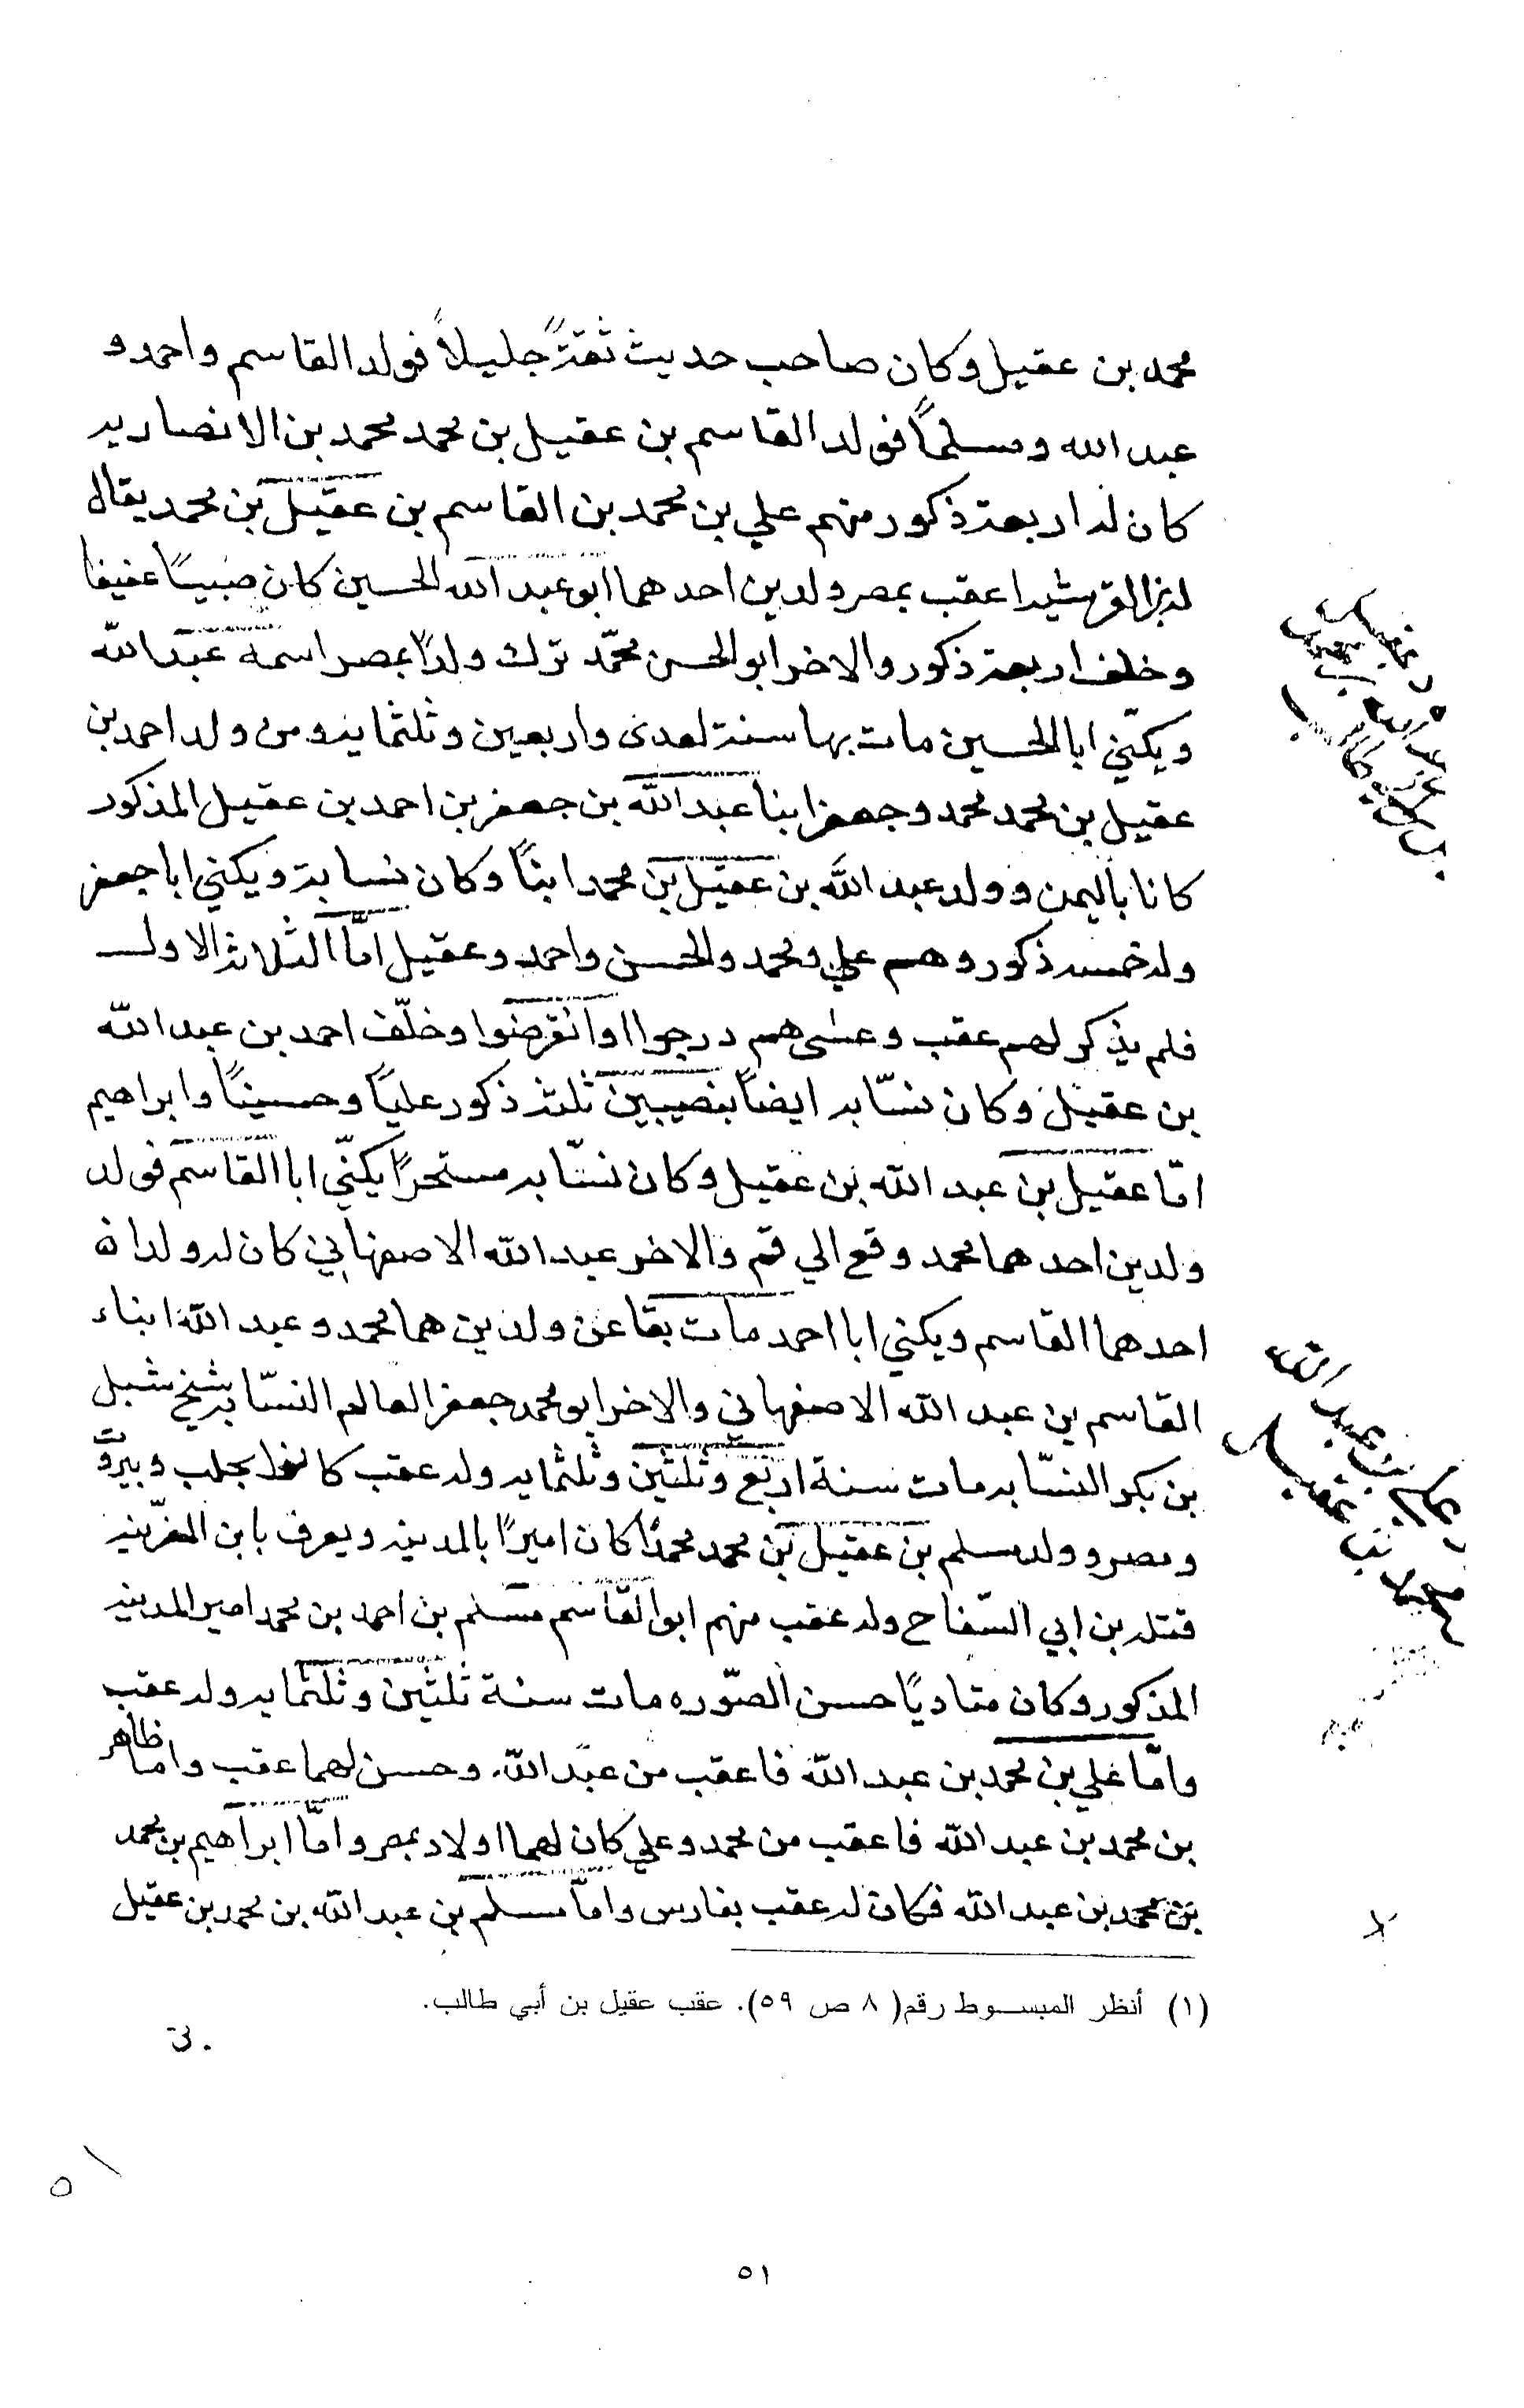 محمد بن عقيل وكان صاحب حديث ثقةً جليلاً فولد القاسم واحمد و
عبد الله ومسلماً فولد القاسم بن عقيل بن محمد محمد بن الانصاريه
كان له اربعة ذكور منهم علي بن محمد بن القاسم بن عقيل بن محمد يقال
له ابن القرشيه اعقب بمصر ولدين احدهما ابو عبد الله الحسين كان عفيفا
وخلف اربعة ذكور والاخر ابو الحسن محمّد ترك ولدًا بمصر اسمه عبد الله
ويكنّي ابا الحسين مات بها سنة لعدى واربعين وثلثمايه ومن ولد احمد بن
عقيل بن محمد محمد وجعفر ابنا عبد الله بن جعفر بن احمد بن عقيل المذكور
كانا باليمن وولد عبد الله بن عقيل بن محمد ابناً وكان نسابة ويكني ابا جعفر
وله خمسه ذكور وهم علي ومحمد والحسن واحمد وعقيل امّا الثلاثة الاول
فلم يذكر لهم عقب وعسى هم درجوا او انقرضوا وخلّف احمد بن عبد الله
بن عقيل وكان نسّابه ايضاً بنصيبين ثلثة ذكور عليّاً وحسيناً وابراهيم
امّا عقيل بن عبد الله بن عقيل وكان نسّابه يكنّي ابا القاسم فولد
ولدين احدهما محمد وقع الي قم والاخر عبد الله الاصفهاني كان له ولدان
احدهما القاسم ويكني ابا احمد مات بقا عن ولدين هما محمد وعبد الله ابناء
القاسم بن عبد الله الاصفهاني والاخر ابو محمد جعفر العالم النسّابه شيخ شبل
بن بكر النسّابه مات سنة اربع وثلثين وثلثمايه وله عقب كانوا بحلب وبيروت
ومصر وولد مسلم بن عقيل بن محمد محمدًا كان اميرًا بالمدينه ويعرف بابن المزنيه
قتله بن ابي السّفاح وله عقب منهم ابو القاسم مسلم بن احمد بن محمد امير المدينه
المذكور وكان متاديًا حسن الصّوره مات سنة ثلثين وثلثمايه وله عقب
وامّا علي بن محمد بن عبد الله فاعقب من عبد الله. وحسن لهما عقب واما ظاهر
بن محمد بن عبد الله فاعقب من محمد وعلي كان لهما اولاد بمصر وامّا ابراهيم بن محمد
بن محمد بن عبد الله فكان له عقب بفارس وامّا مسلم بن عبد الله بن محمد بن عقيل
(١) أنظر المبسوط رقم( ٨ ص ٥٩). عقب عقيل بن أبي طالب.
٥١